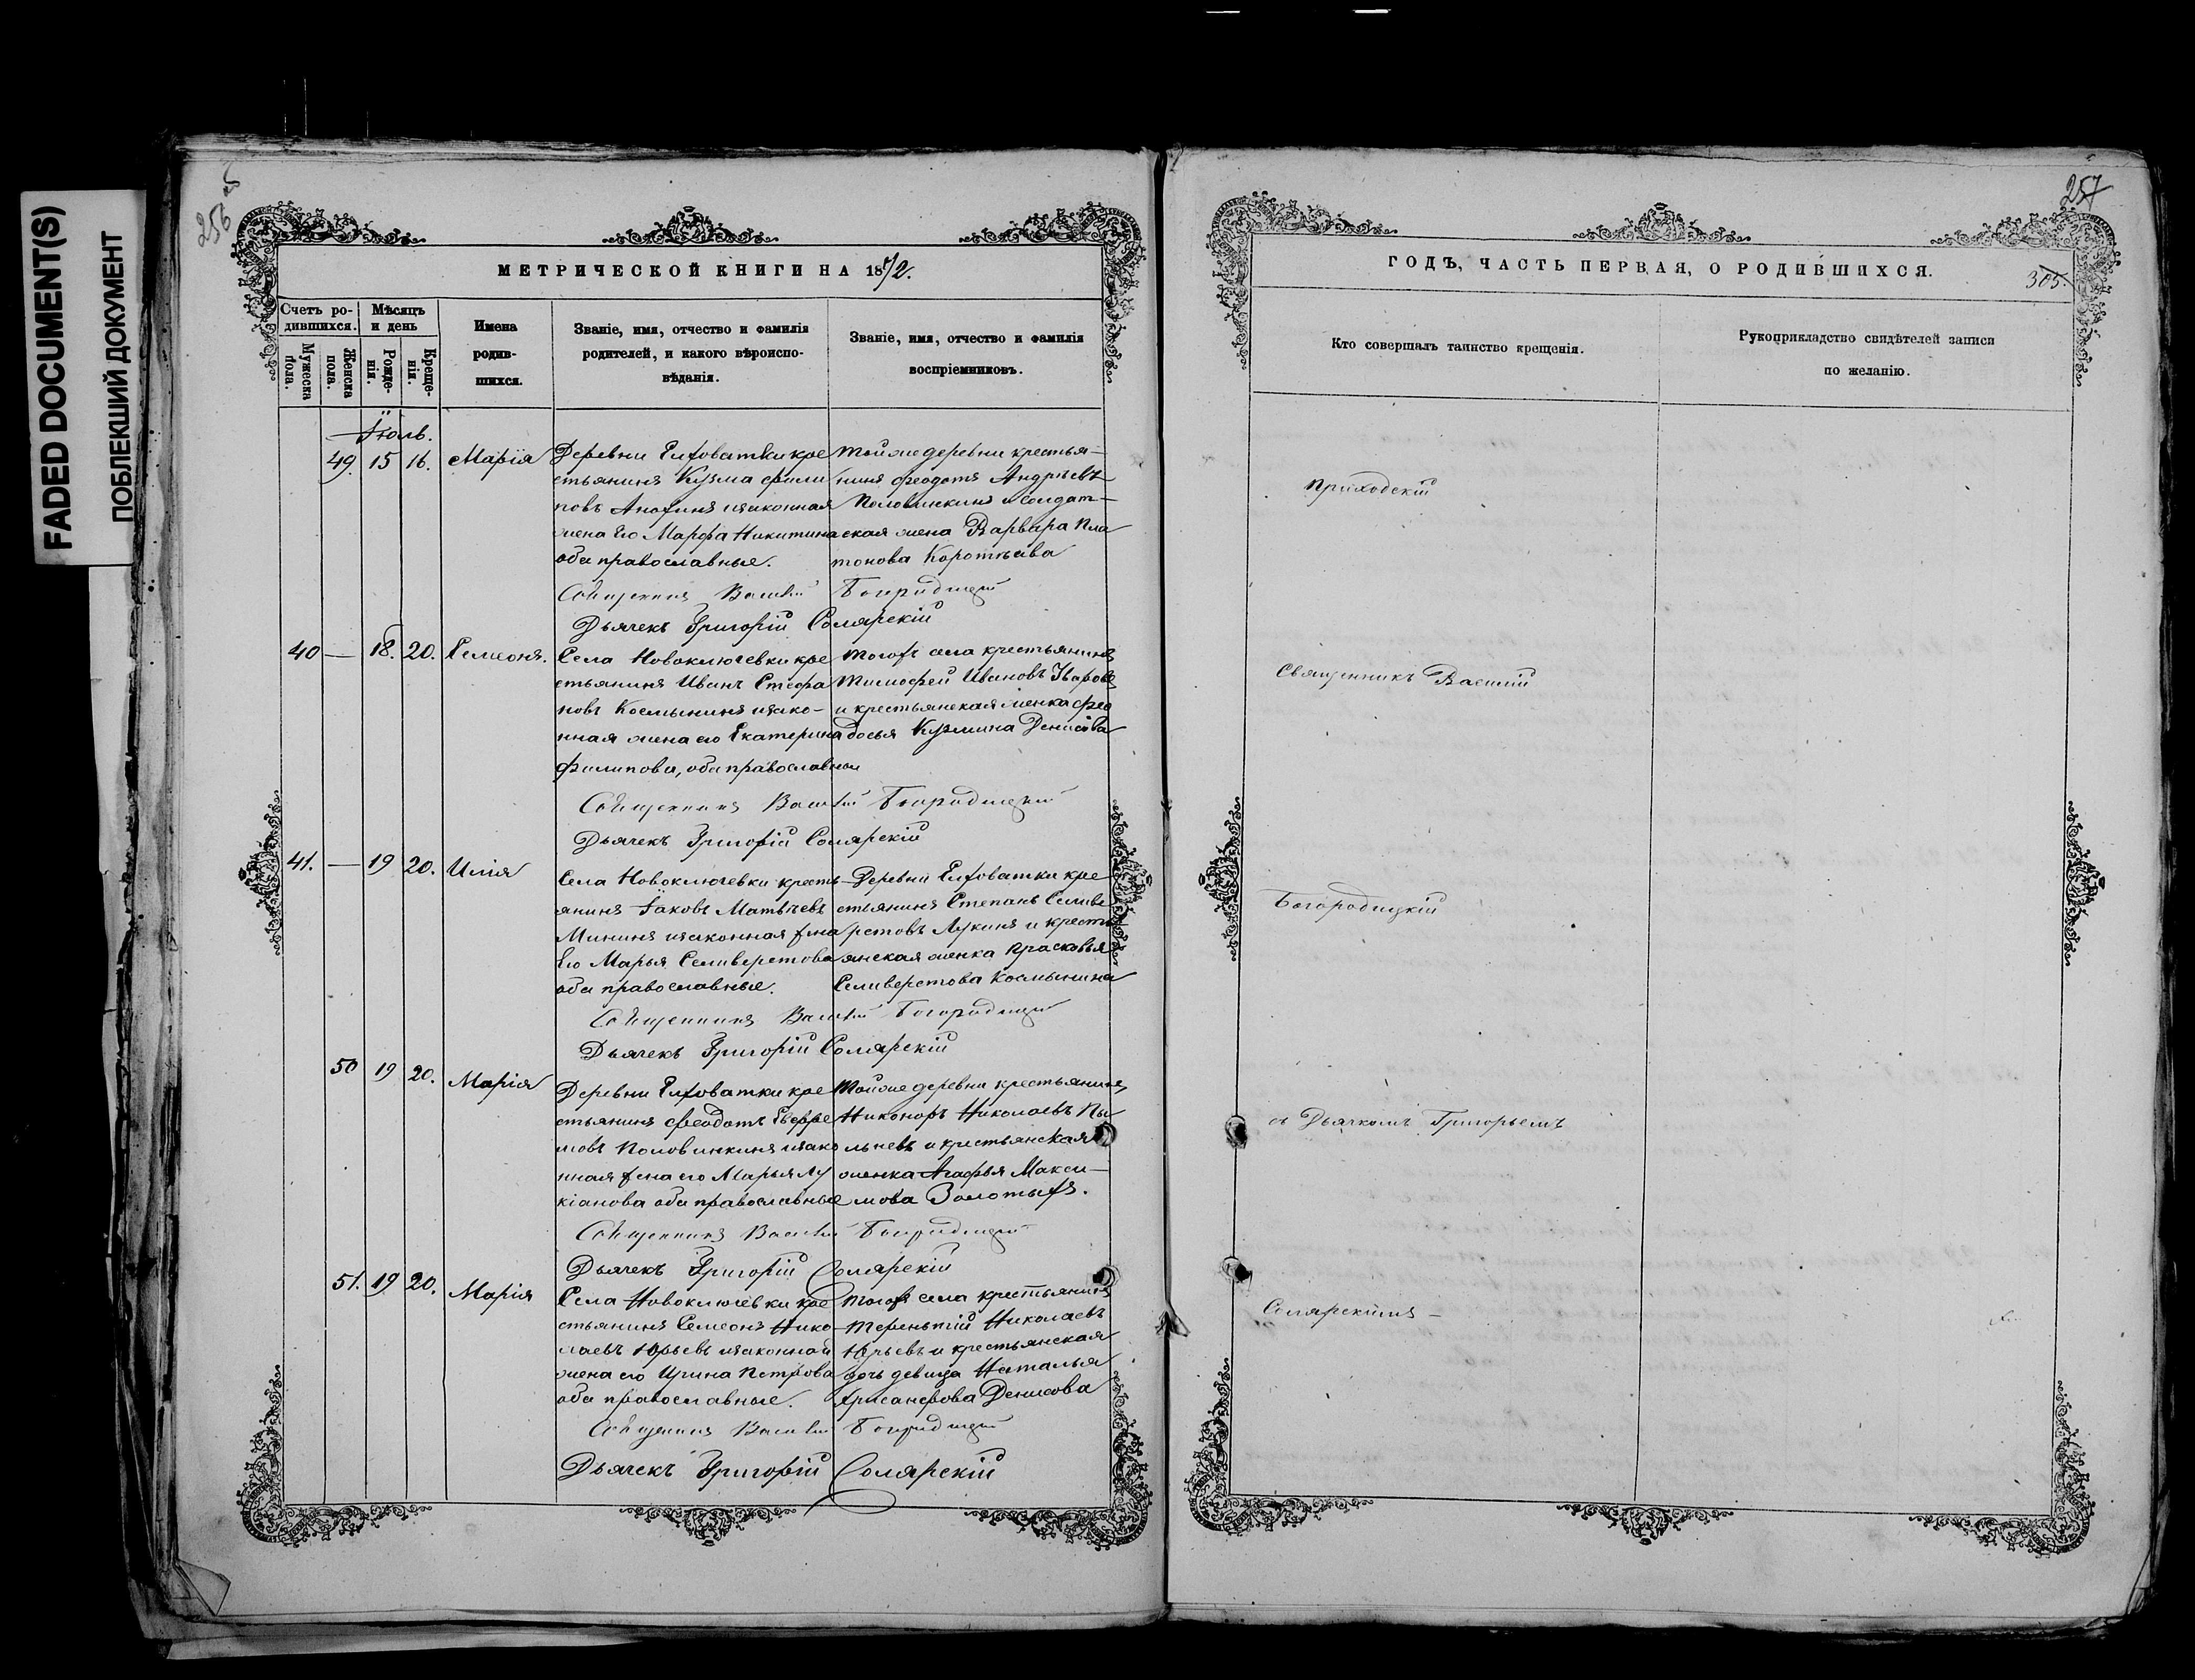 FADED DOCUMENT(S)
ПОБЛЕКШИЙ ДОКУМЕНТ
256 об
МЕТРИЧЕСКОЙ КНИГИ НА 1872.
Счетъ родившихся.
Мужеска пола.
Женска пола.
Мѣсяцъ и день
Рожденія.
Крещенія.
Имена родившихся.
Званіе, имя, отчество и фамилія
родителей, и какого вѣроиспо-
вѣданія.
Званіе, имя, отчество и фамилія
воспріемниковъ.
Іюль.
49. 15 16. Марія
Деревни Елховатки кре
стьянинъ Кузма Фили
повъ Анофинъ изаконная
жена Его Марфа Никитина
оба православные.
Тойже деревни крестья-
нинъ Феодотъ Андреевъ
Половинкинъ и солдат-
ская жена Варвара Пла
тонова Коротѣева
Священникъ Василій Богородицкій
Дьячекъ Григорій Солярскій
40 — 18. 20. Семеонъ.
Села Новоключевки кре
стьянинъ Иванъ Стефа
новъ Космынинъ изако-
нная жена его Екатерина
Филипова, оба православные
Тогож села крестьянинъ
Тимофей Ивановъ Уваровъ
и крестьянская женка Фео
досья Кузмина Денисова
Священникъ Василій Богородицкій
Дьячекъ Григорій Солярскій
41. — 19 20. Илія
Села Новоключевки кресть-
янинъ Іаковъ Матвѣевъ
Мининъ изаконная жена
Его Марья Селиверстова
оба православные.
Деревни Елховатки кре
стьянинъ Степанъ Селиве
рстовъ Лукинъ и кресть
янская женка Прасковья
Селиверстова Космынина
Священникъ Василій Богородицкій
Дьячекъ Григорій Солярскій
50 19 20. Марія
Деревни Елховатки кре
стьянинъ Феодотъ Евфре
мовъ Половинкинъ изако
нная жена его Марья Лу
кіанова оба православные
Тойже деревни крестьянинъ
Никоноръ Николаевъ Пы
льневъ и крестьянская
женка Агафья Макси-
мова Золотыхъ.
Священникъ Василій Богородицкій
Дьячекъ Григорій Солярскій
51. 19 20. Марія
Села Новоключевки кре
стьянинъ Семеонъ Нико-
лаевъ Юрьевъ изаконная
жена его Ирина Петрова
оба православные.
Тогож села крестьянинъ
Терентій Николаевъ
Юрьевъ и крестьянская
дочь девица Наталья
Хрисанфова Денисова
Священникъ Василій Богородицкій
Дьячекъ Григорій Солярскій
257
ГОДЪ, ЧАСТЬ ПЕРВАЯ, О РОДИВШИХСЯ.
305.
Кто совершалъ таинство крещенія.
Рукоприкладство свидѣтелей записи
по желанію.
Приходскій
Священникъ Василій
Богородицкій
съ Дьячкомъ Григорьемъ
Солярскимъ —